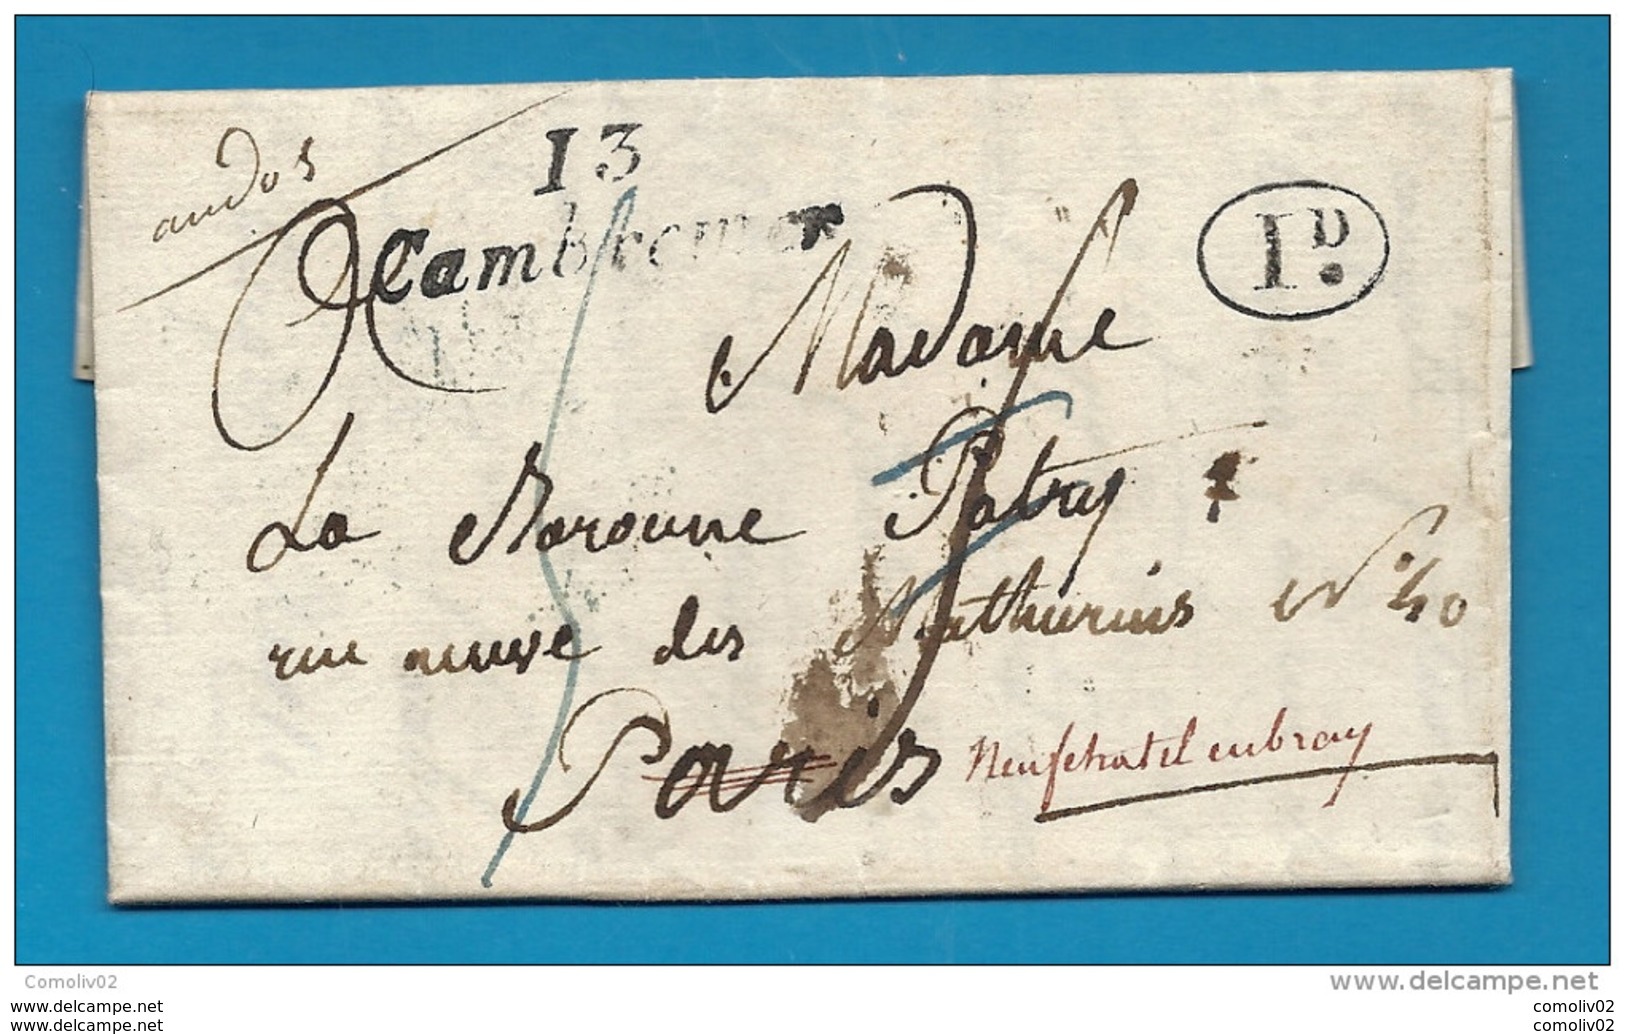 au dos
13
Cambremer
1D.
Madame
La Baronne Patry
rue neuve des Mathurins N° 40
Paris Neufchatel en bray
Comoliv02
www.delcampe.net
www.delcampe.net
www.delcampe.net
comoliv02
comoliv02